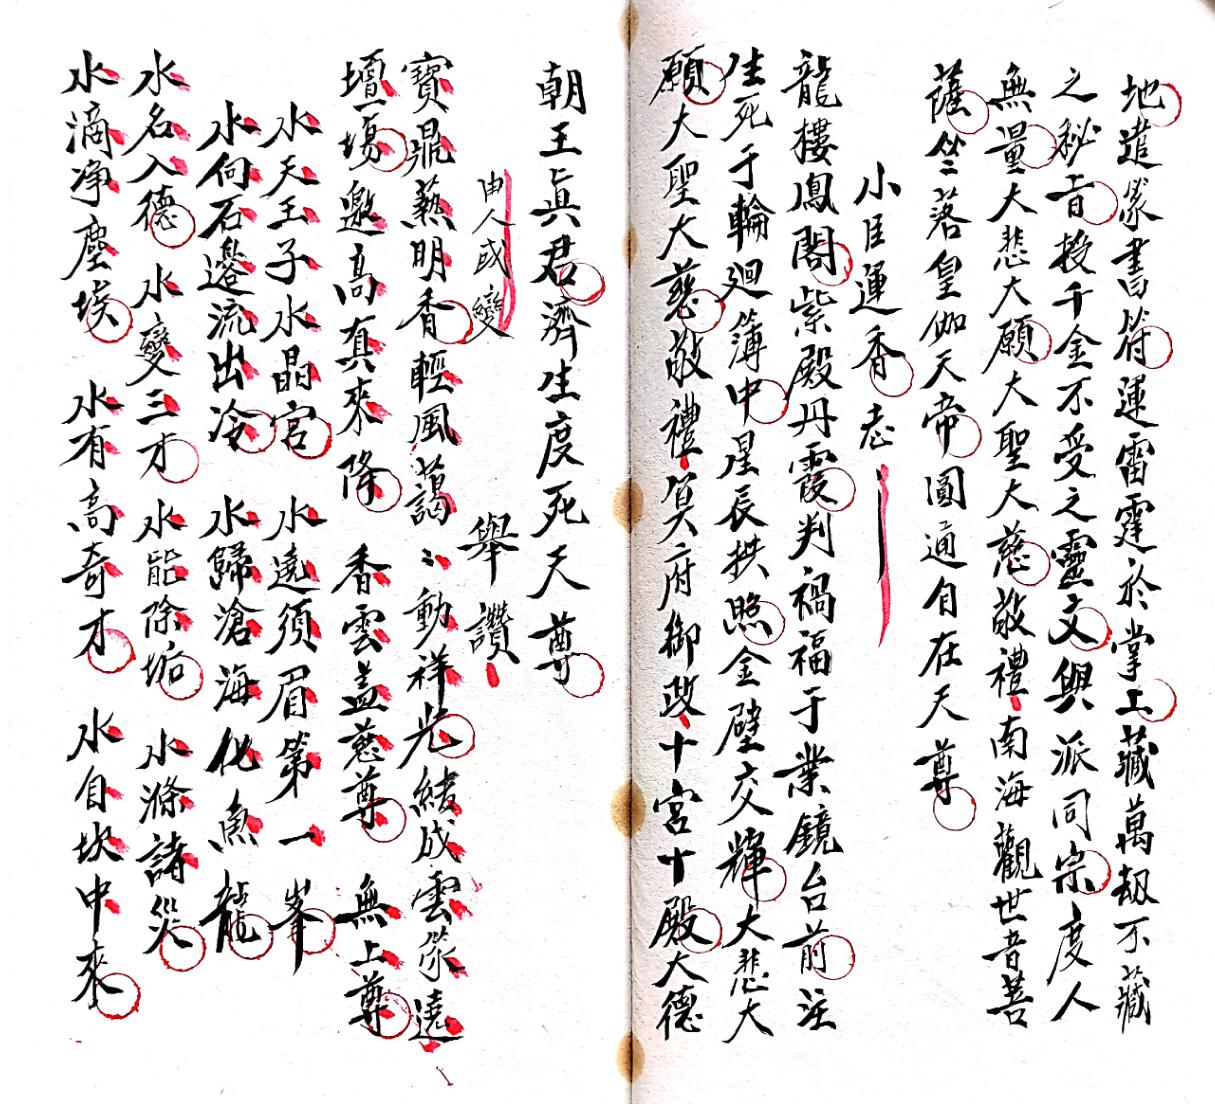 地遣篆書符運雷霆於掌上藏萬刼不藏
之秘旨授千金不受之靈文興派同宗度人
無量大悲大願大聖大慈敬禮南海觀世音菩
薩竺落皇伽天帝圓通自在天尊
小臣運香志
龍樓鳳閣紫殿丹霞判禍福于業鏡台前注
生死于輪廻簿中星辰拱照金壁交輝大悲大
願大聖大慈敬禮冥府御政十宮十殿大德
朝王真君濟生度死天尊
由人或變
舉讚
寶鼎爇明香輕風藹〻動祥光結成雲篆遶
壇塲邀高真來降 香雲盖慈尊 無上尊
水天王子水晶宮 水遶須眉第一峯
水向石邊流出冷 水歸滄海化魚龍
水名入德 水變三才 水能除垢 水滌諸災
水滴净塵埃 水有高奇才 水自坎中來